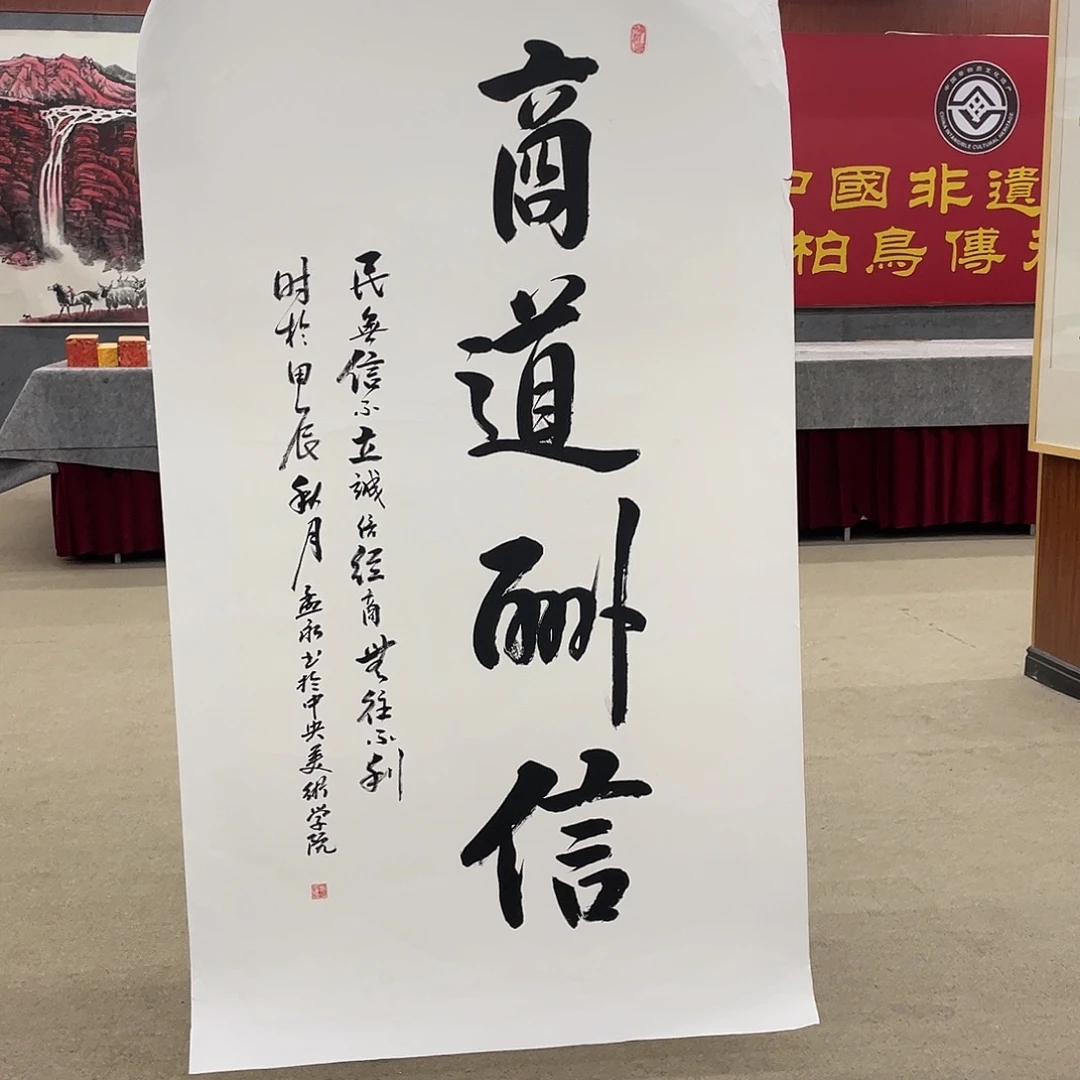 商道酬信
民無信不立誠信经商無往不利
时於甲辰秋月孟永书於中央美術学院
中國非遺
柏鳥傳
中国非物质文化遗产
CHINA INTANGIBLE CULTURAL HERITAGE